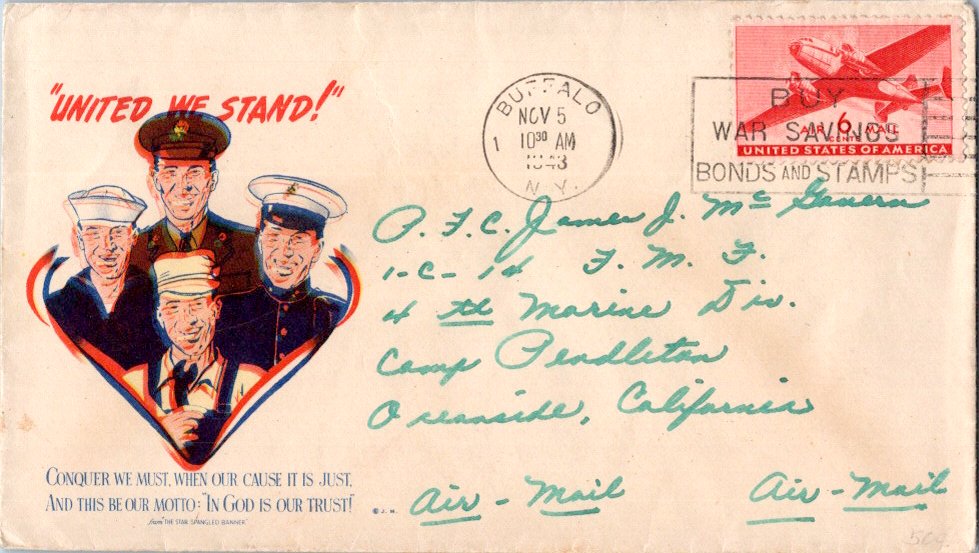 "UNITED WE STAND!"
BUFFALO
NOV 5
1 10 30 AM
1943
N.Y.
BUY
WAR SAVINGS
BONDS AND STAMPS
AIR 6 MAIL
CENTS
UNITED STATES OF AMERICA
P.F.C. James J. McGovern
1-C-14 F. M. F.
4 th Marine Div.
Camp Pendleton
Oceanside, California
CONQUER WE MUST, WHEN OUR CAUSE IT IS JUST,
AND THIS BE OUR MOTTO: "IN GOD IS OUR TRUST!"
from "THE STAR SPANGLED BANNER"
© J. M.
Air - Mail
Air - Mail